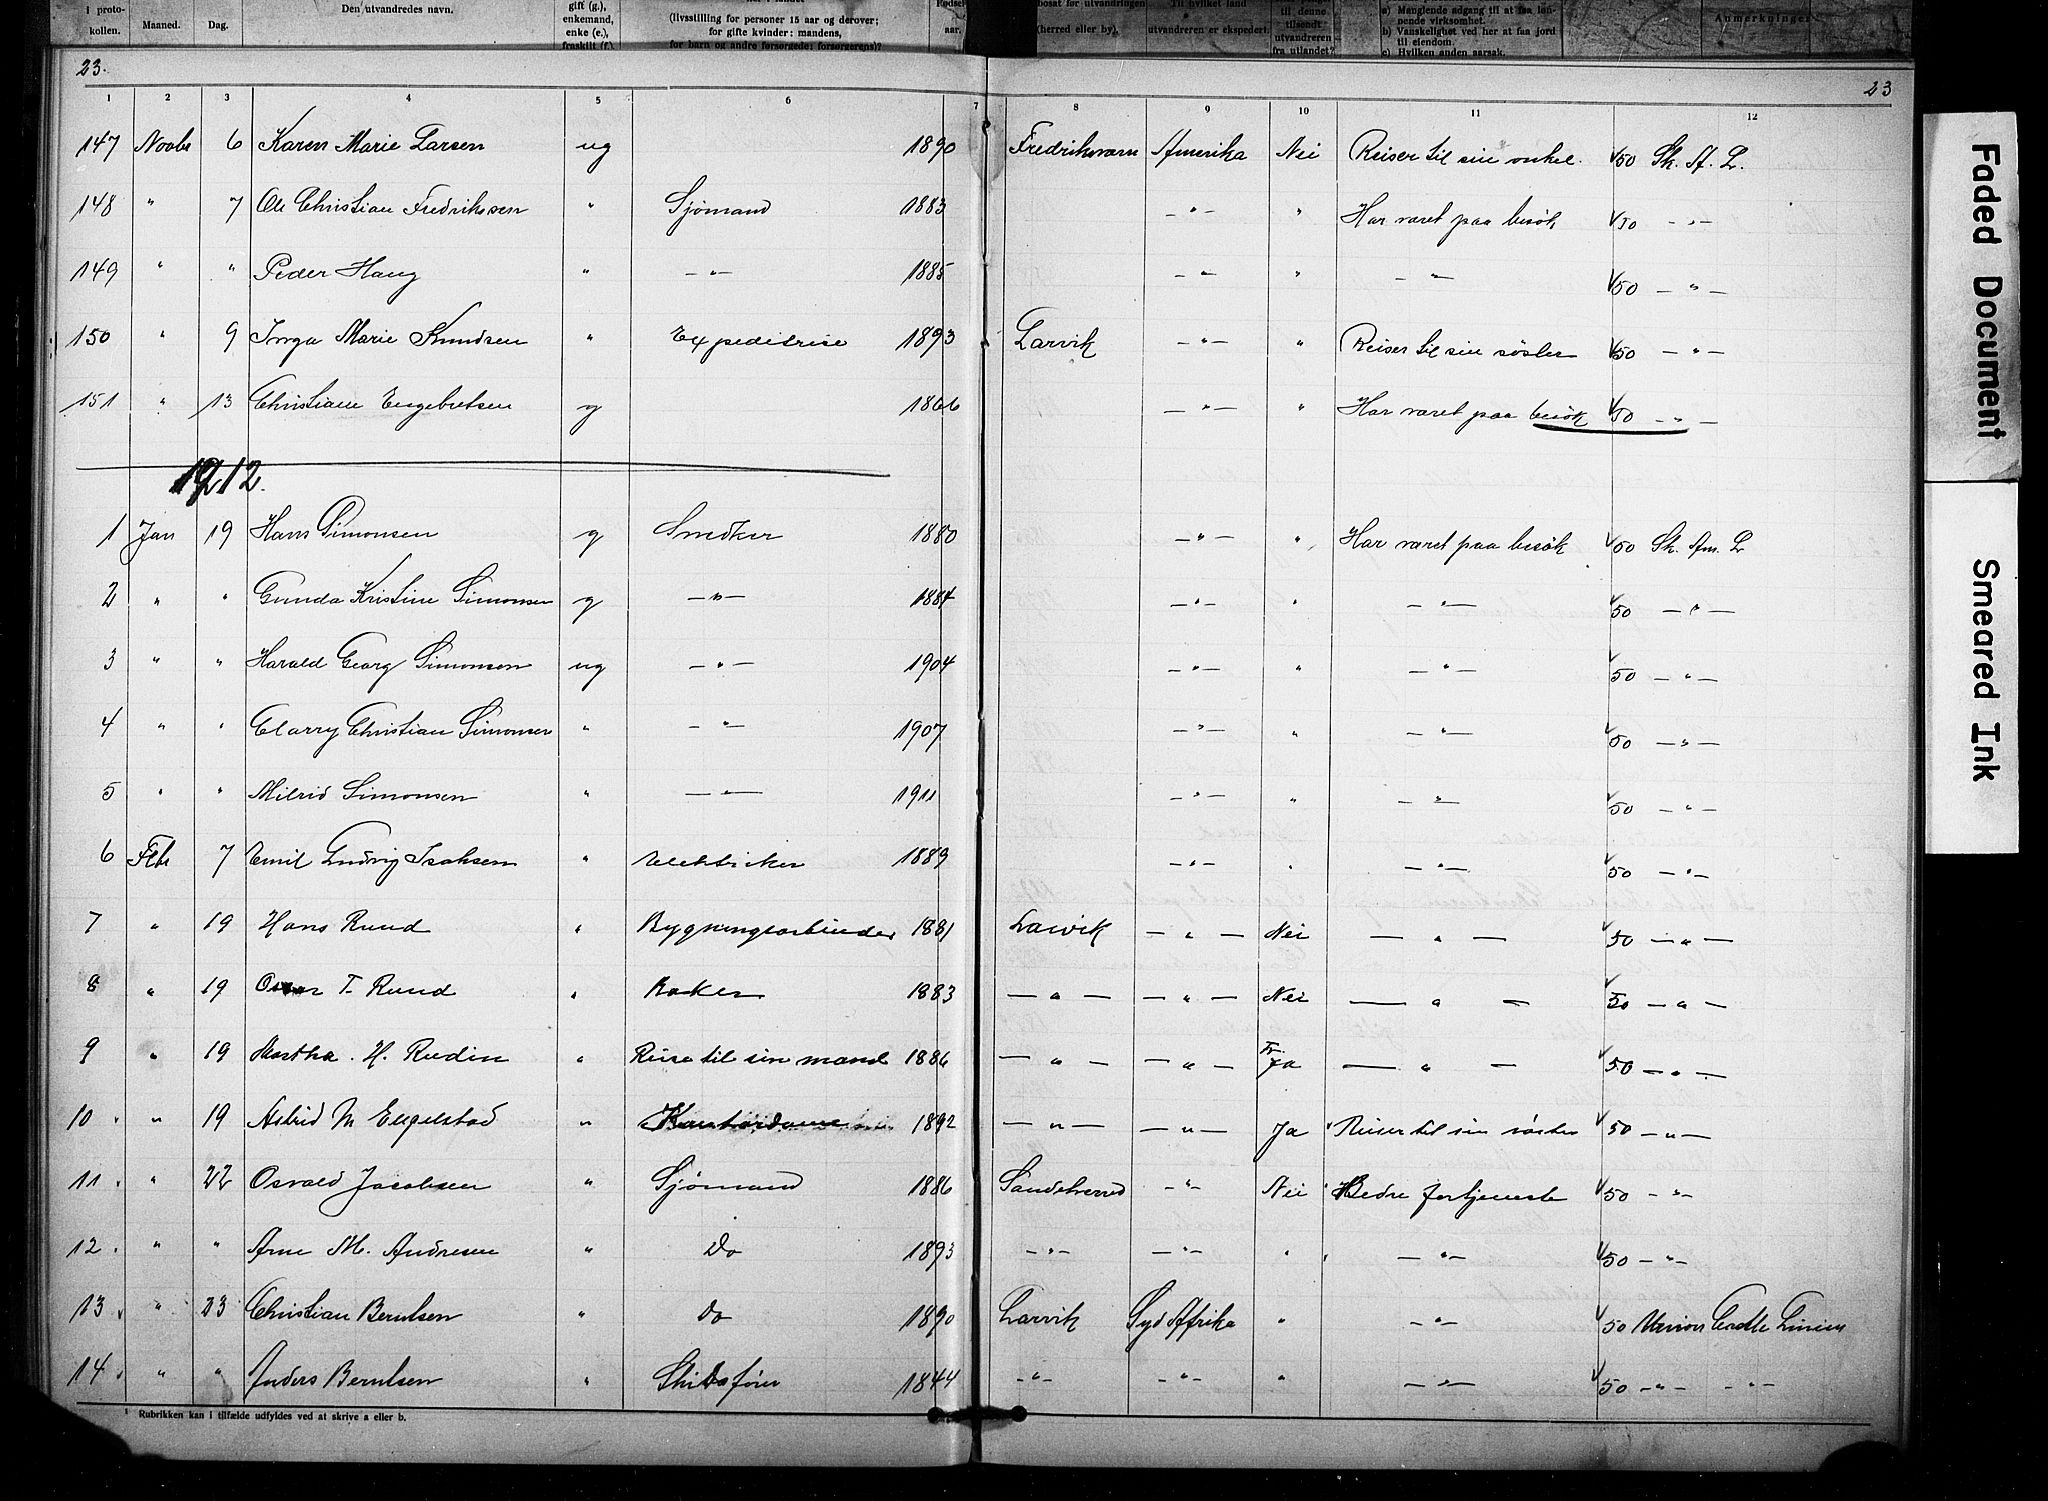 i proto-kollen. Maaned. Dag. Den utvandredes navn. gift (g.), enkemand, enke (e.), fraskilt (f.) (livsstilling for personer 15 aar og derover; for gifte kvinder: mandens, for barn og andre forsørgede: forsørgerens)? aar. bosat før utvandringen (herred eller by). Til hvilket land utvandreren er ekspedert. til denne tilsendt utvandreren fra utlandet? a) Manglende adgang til at faa løn-nende virksomhet. b) Vanskelighet ved her at faa jord til eiendom. c) Hvilken anden aarsak. Anmerkninger.
23. 23
1 2 3 4 5 6 7 8 9 10 11 12
147 Novbr 6 Karen Marie Larsen ug 1890 Fredriksværn Amerika Nei Reiser til sin onkel. 50 Sk. A. L.
148 " 7 Ole Christian Fredrikssen " Sjømand 1883 -"- " Har været paa besøk 50 -"-
149 " " Peder Haug " -"- 1885 -"- " -"- 50 -"-
150 " 9 Inga Marie Knudsen " Expeditrise 1893 Larvik -"- " Reiser til sin søster 50 -"-
151 " 13 Christiane Engebretsen g 1866 -"- " Har været paa besøk 50 -"-
1912.
1 Jan 19 Hans Simonsen g Snedker 1880 -"- " Har været paa besøk 50 Sk. Am. L
2 " " Gunda Kristine Simonsen g -"- 1884 -"- " -"- 50 -"-
3 " " Harald Georg Simonsen ug -"- 1904 -"- " -"- 50 -"-
4 " " Clarry Christian Simonsen " -"- 1907 -"- " -"- 50 -"-
5 " " Milrid Simonsen " -"- 1911 -"- " -"- 50 -"-
6 Feb 7 Emil Ludvig Isaksen " 1889 -"- " -"- 50 -"-
7 " 19 Hans Ruud " Bygningsarbeider 1881 Larvik -"- Nei -"- 50 -"-
8 " 19 T. Ruud " Baker 1883 -"- -"- Nei -"- 50 -"-
9 " 19 Martha. H. Rudin " Reise til sin mand 1886 -"- -"- Ja -"- 50 -"-
10. " 19 Astrid M Engelstad " Kontordame 1892 -"- -"- Ja Reiser til sin søster 50 -"-
11. " 22 Osvald Jacobsen " Sjømand 1886 Sandeherred -"- Nei Bedre fortjeneste 50 -"-
12. " " Arne M. Andresen " Do 1893 -"- -"- " -"- 50 -"-
13. " 23 Christian Berntsen " do 1890 Larvik Syd Afrika " -"- 50 Union Castle Linien
14. " " Anders Berntsen " Skibsfører 1844 -"- -"- " -"- 50 -"- -"-
1 Rubrikken kan i tilfælde udfyldes ved at skrive a eller b.
Faded Document
Smeared Ink